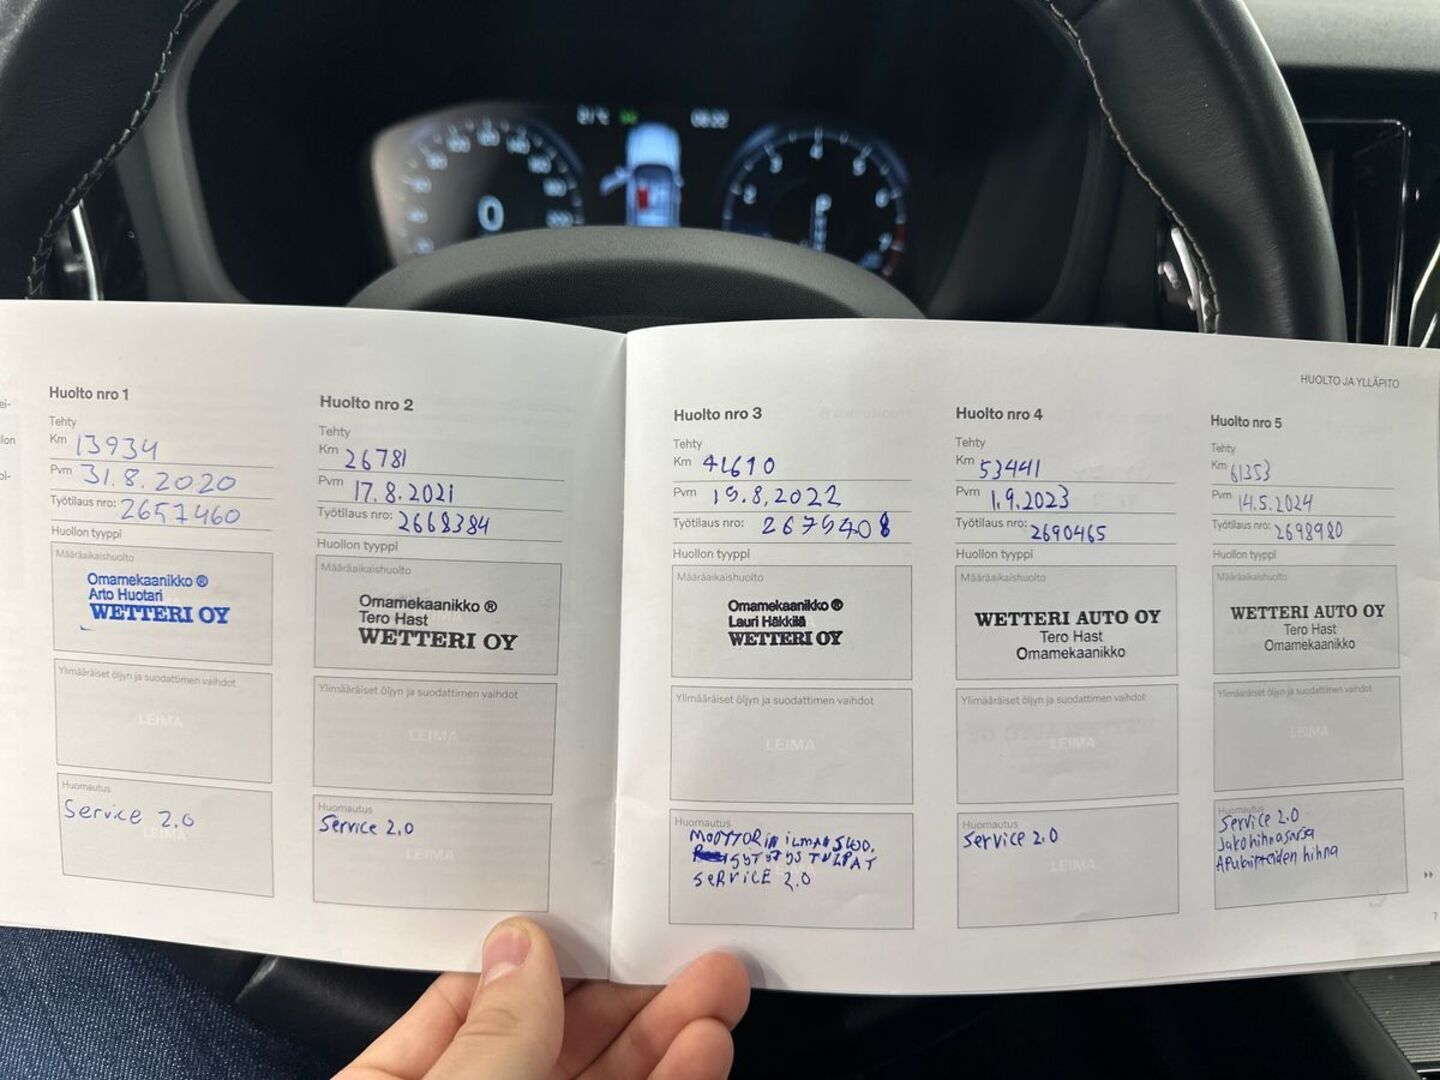 0
2
3
4
5
6
7
HUOLTO JA YLLÄPITO
Huolto nro 1
Tehty
Km 13934
Pvm 31.8.2020
Työtilaus nro: 2657460
Huollon tyyppi
Määräaikaishuolto
Omamekaanikko ®
Arto Huotari
WETTERI OY
Ylimääräiset öljyn ja suodattimen vaihdot
LEIMA
Huomautus
Service 2.0
LEIMA
Huolto nro 2
Tehty
Km 26781
Pvm 17.8.2021
Työtilaus nro: 2668384
Huollon tyyppi
Määräaikaishuolto
Omamekaanikko ®
Tero Hast
WETTERI OY
Ylimääräiset öljyn ja suodattimen vaihdot
LEIMA
Huomautus
Service 2.0
LEIMA
Huolto nro 3
Tehty
Km 41610
Pvm 19.8.2022
Työtilaus nro: 2679408
Huollon tyyppi
Määräaikaishuolto
Omamekaanikko ®
Lauri Häkkilä
WETTERI OY
Ylimääräiset öljyn ja suodattimen vaihdot
LEIMA
Huomautus
MOOTTORIN ILMANSUOD.
SYTYTYSTULPAT
SERVICE 2.0
Huolto nro 4
Tehty
Km 53441
Pvm 1.9.2023
Työtilaus nro: 2690465
Huollon tyyppi
Määräaikaishuolto
WETTERI AUTO OY
Tero Hast
Omamekaanikko
Ylimääräiset öljyn ja suodattimen vaihdot
LEIMA
Huomautus
Service 2.0
LEIMA
Huolto nro 5
Tehty
Km 61353
Pvm 14.5.2024
Työtilaus nro: 2698980
Huollon tyyppi
Määräaikaishuolto
WETTERI AUTO OY
Tero Hast
Omamekaanikko
Ylimääräiset öljyn ja suodattimen vaihdot
LEIMA
Huomautus
Service 2.0
Jakohihnasarja
Apulaitteiden hihna
7